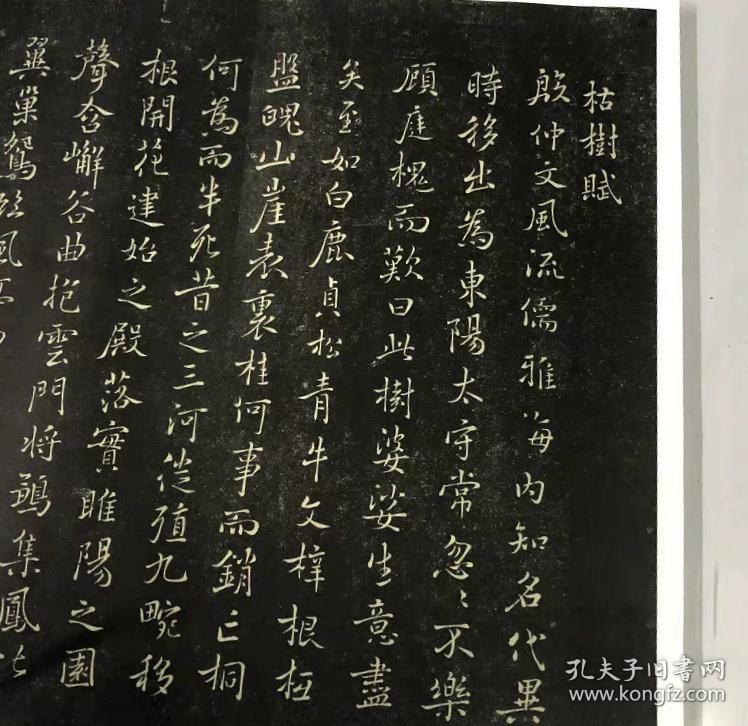 枯樹賦
殷仲文風流儒雅海内知名代異
時移出為東陽太守常忽〻不樂
顧庭槐而歎曰此樹婆娑生意盡
矣至如白鹿貞松青牛文梓根柢
盤魄山崖表裏桂何事而銷亡桐
何為而半死昔之三河徙殖九畹移
根開花建始之殿落實睢陽之園
聲含嶰谷曲抱雲門将鶵集鳳比
翼巢鴛
孔夫子旧书网
www.kongfz.com